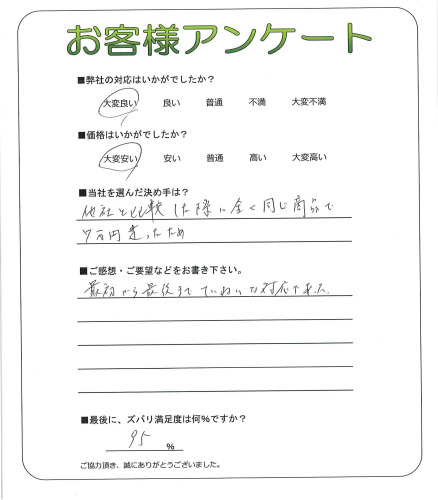 お客様アンケート
■弊社の対応はいかがでしたか？
大変良い 良い 普通 不満 大変不満
■価格はいかがでしたか？
大変安い 安い 普通 高い 大変高い
■当社を選んだ決め手は？
他社と比較した際に全く同じ商品で
7万円違ったため
■ご感想・ご要望などをお書き下さい。
最初から最後までていねいな対応でした。
■最後に、ズバリ満足度は何％ですか？
95 %
ご協力頂き、誠にありがとうございました。